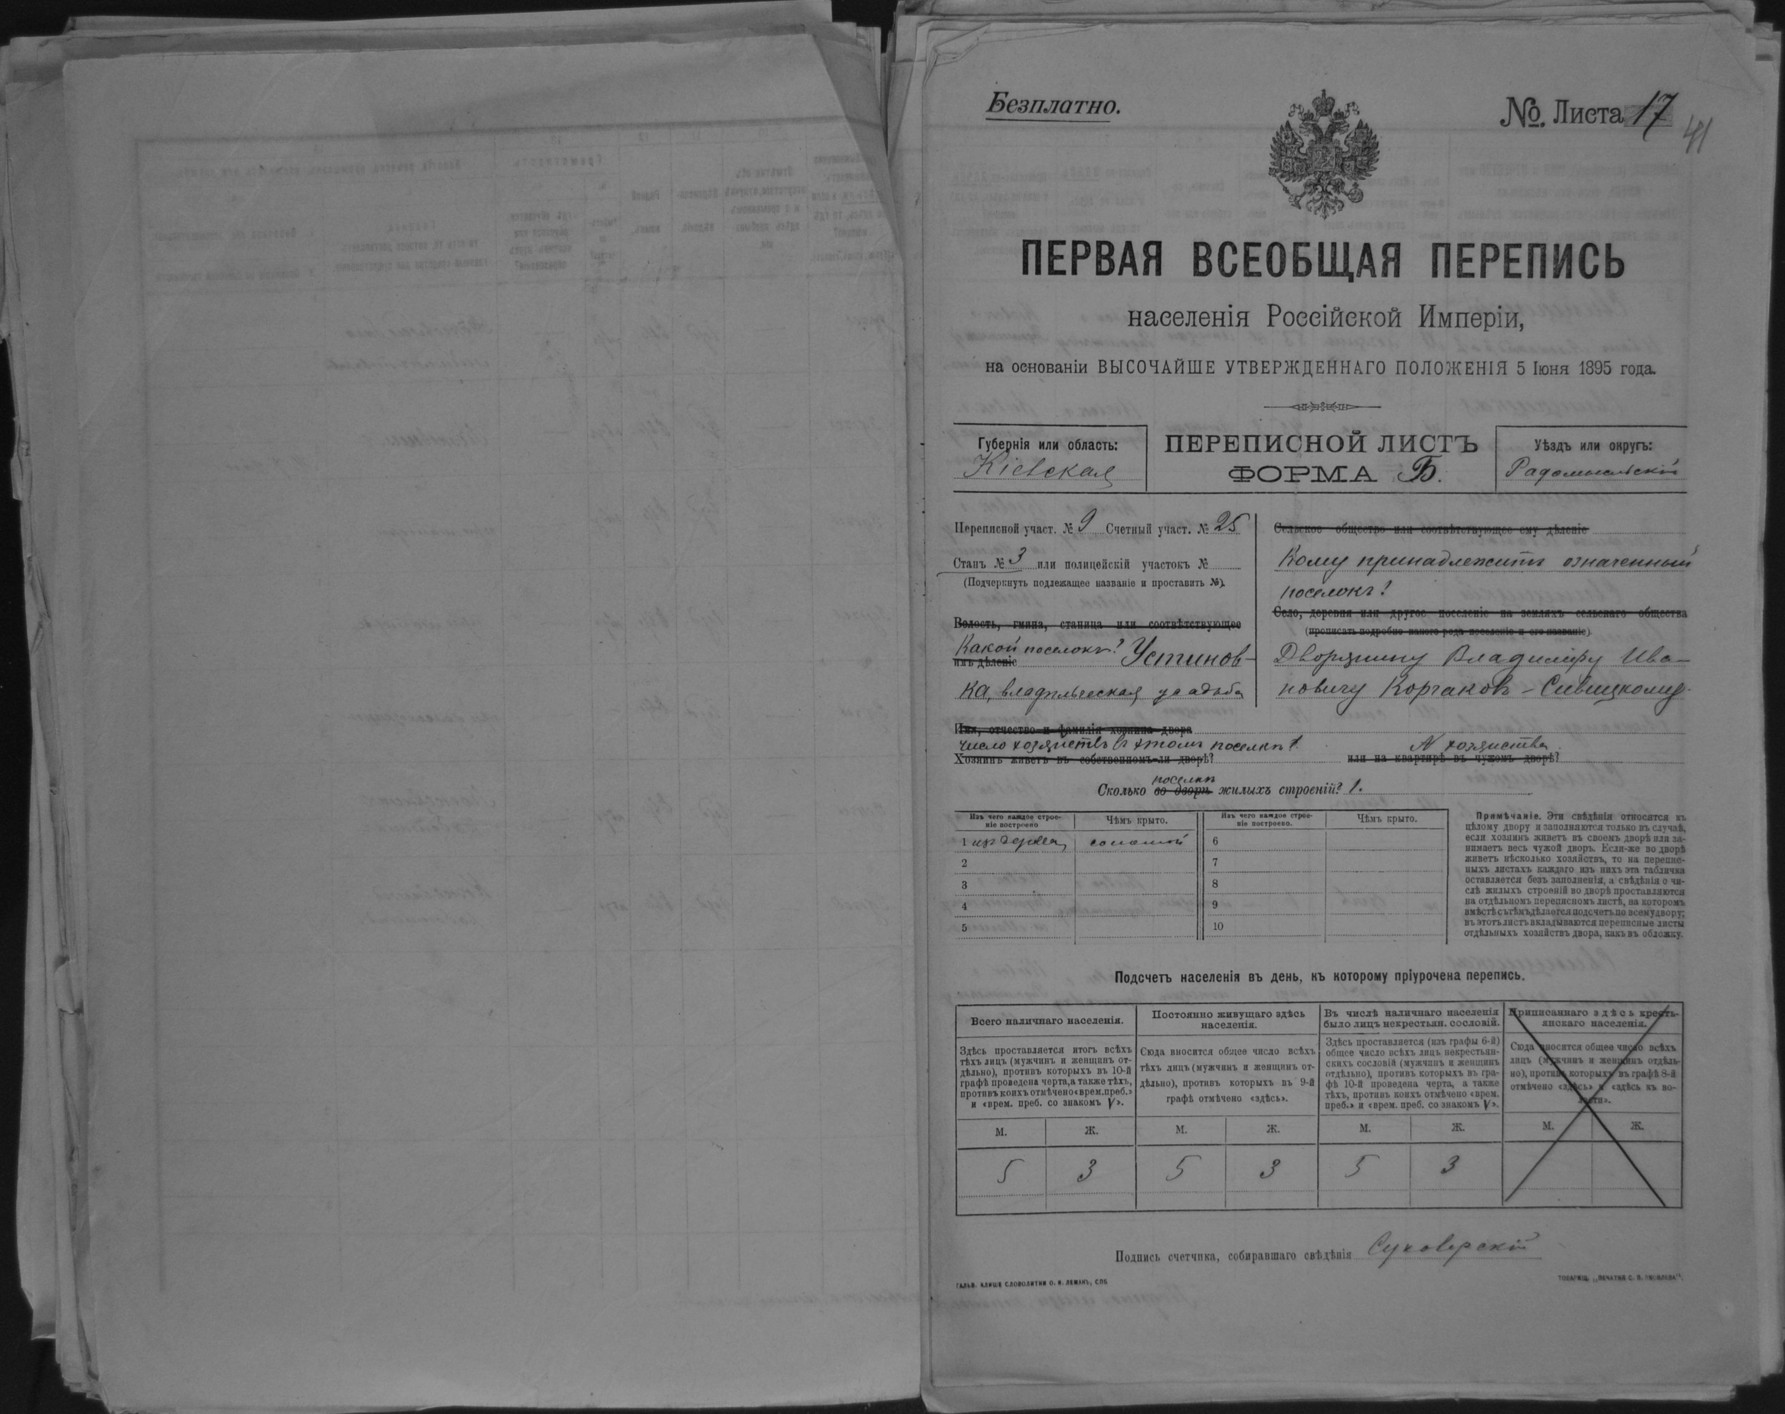 Безплатно.
№ Листа 17
41
ПЕРВАЯ ВСЕОБЩАЯ ПЕРЕПИСЬ
населенія Россійской Имперіи,
на основаніи ВЫСОЧАЙШЕ УТВЕРЖДЕННАГО ПОЛОЖЕНІЯ 5 Іюня 1895 года.
Губернія или область:
Кіевская
ПЕРЕПИСНОЙ ЛИСТЪ
ФОРМА Б.
Уѣздъ или округъ:
Радомысльскій
Переписной участ. № 9 Счетный участ. № 25
Станъ № 3 или полицейскій участокъ №
(Подчеркнуть подлежащее названіе и проставить №).
Волость, гмина, станица или соотвѣтствующее
имъ дѣленіе
Какой поселокъ? Устинов-
ка, владѣльческая усадьба
Сельское общество или соотвѣтствующее ему дѣленіе
Кому принадлежитъ означенный
поселокъ?
Село, деревня или другое поселеніе на земляхъ сельскаго общества
(прописать подробно какого рода поселеніе и его названіе)
Дворянину Владиміру Ива-
новичу Корчаков-Сивицкому.
Имя, отчество и фамилія хозяина двора
Число хозяйствъ въ этомъ поселкѣ 1
N хозяйства
Хозяинъ живетъ въ собственномъ-ли дворѣ?
или на квартирѣ въ чужомъ дворѣ?
поселкѣ
Сколько во дворѣ жилыхъ строеній? 1.
Изъ чего каждое строе-
ніе построено
Чѣмъ крыто.
Изъ чего каждое строе-
ніе построено.
Чѣмъ крыто.
1 изъ дерева соломой 6
2 7
3 8
4 9
5 10
Примѣчаніе. Эти свѣдѣнія относятся къ
цѣлому двору и заполняются только въ случаѣ,
если хозяинъ живетъ въ своемъ дворѣ или за-
нимаетъ весь чужой дворъ. Если-же во дворѣ
живетъ нѣсколько хозяйствъ, то на перепис-
ныхъ листахъ каждаго изъ нихъ эта табличка
оставляется безъ заполненія, а свѣдѣнія о чи-
слѣ жилыхъ строеній во дворѣ проставляются
на отдѣльномъ переписномъ листѣ, на которомъ
вмѣстѣ съ тѣмъ дѣлается подсчетъ по всему двору;
въ этотъ листъ вкладываются переписные листы
отдѣльныхъ хозяйствъ двора, какъ въ обложку.
Подсчетъ населенія въ день, къ которому пріурочена перепись.
Всего наличнаго населенія.
Здѣсь проставляется итогъ всѣхъ
тѣхъ лицъ (мужчинъ и женщинъ от-
дѣльно), противъ которыхъ въ 10-й
графѣ проведена черта, а также тѣхъ,
противъ коихъ отмѣчено «врем. преб.»
и «врем. преб. со знакомъ V».
Постоянно живущаго здѣсь
населенія.
Сюда вносится общее число всѣхъ
тѣхъ лицъ (мужчинъ и женщинъ от-
дѣльно), противъ которыхъ въ 9-й
графѣ отмѣчено «здѣсь».
Въ числѣ наличнаго населенія
было лицъ некрестьян. сословій.
Здѣсь проставляется (изъ графы 6-й)
общее число всѣхъ лицъ некрестьян-
скихъ сословій (мужчинъ и женщинъ
отдѣльно), противъ которыхъ въ гра-
фѣ 10-й проведена черта, а также
тѣхъ, противъ коихъ отмѣчено «врем.
преб.» и «врем. преб. со знакомъ V».
Приписаннаго здѣсь кресть-
янскаго населенія.
Сюда вносится общее число всѣхъ
лицъ (мужчинъ и женщинъ отдѣль-
но), противъ которыхъ въ графѣ 8-й
отмѣчено «здѣсь» и «здѣсь къ во-
лости».
М. Ж. М. Ж. М. Ж. М. Ж.
5 3 5 3 5 3
Подпись счетчика, собиравшаго свѣдѣнія Суховерскій
ГАЛЬВ. КЛИШЕ СЛОВОЛИТНИ О. И. ЛЕМАНЪ, СПБ.